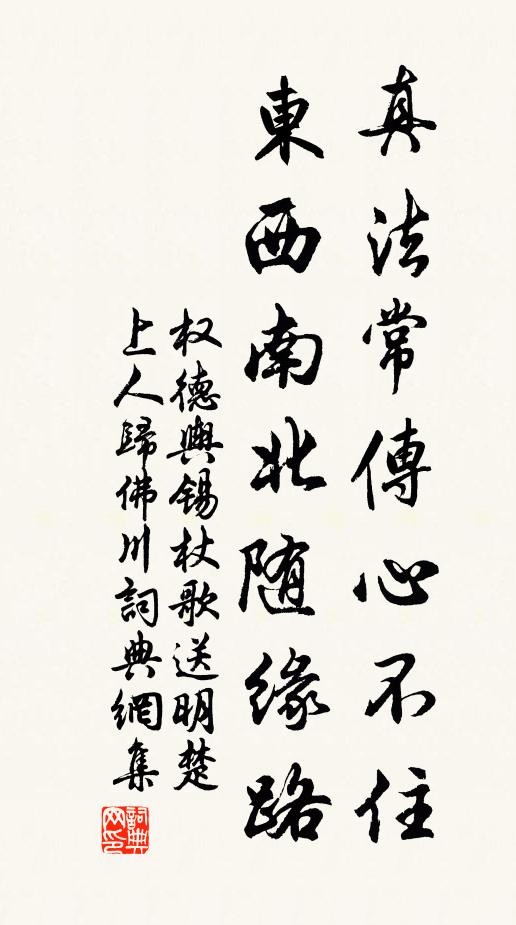 真法常傳心不住
東西南北随緣路
权德輿錫杖歌送明楚
上人歸佛川詞典網集
詞典
网印